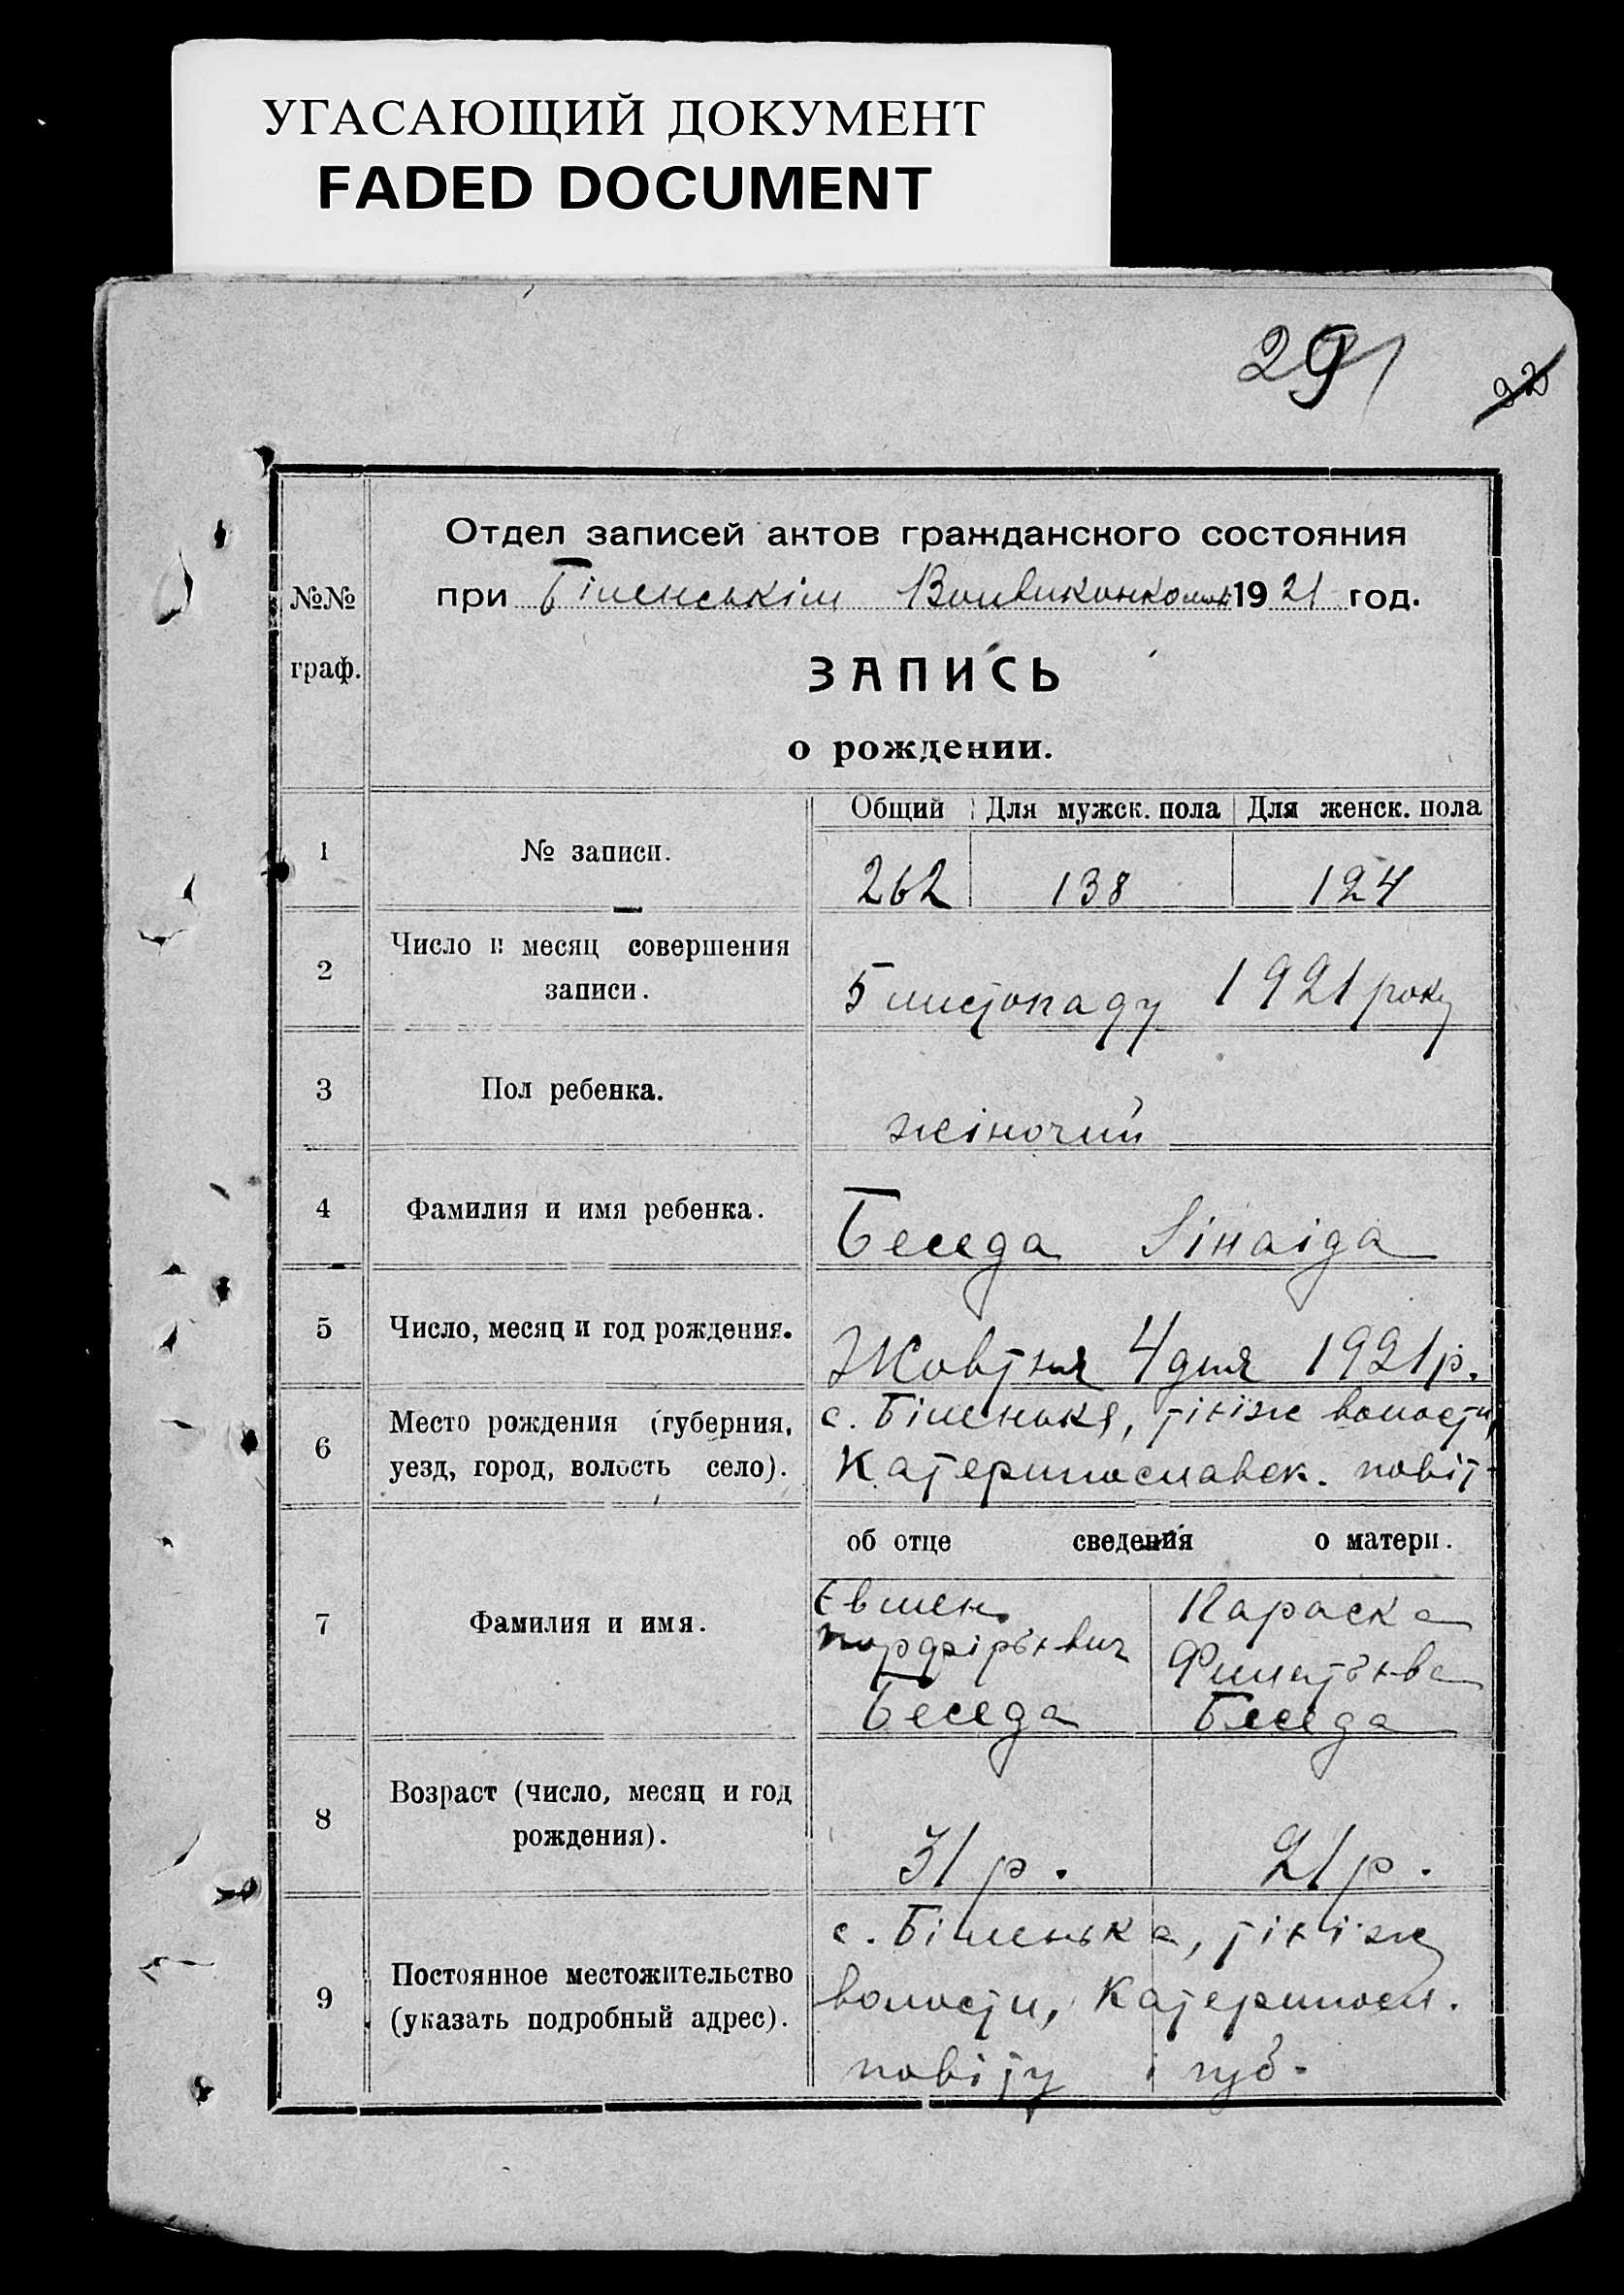 УГАСАЮЩИЙ ДОКУМЕНТ
FADED DOCUMENT
291
32
Отдел записей актов гражданского состояния
№№ при Біленськім Волвиконкомі 1921 год.
граф.
ЗАПИСЬ
о рождении.
Общий Для мужск. пола Для женск. пола
1 № записи.
262 138 124
2 Число и месяц совершения
записи.
5 листопаду 1921 року
3 Пол ребенка.
жіночий
4 Фамилия и имя ребенка.
Беседа Зінаіда
5 Число, месяц и год рождения.
Жовтня 4 дня 1921 р.
6 Место рождения (губерния,
уезд, город, волость село).
с. Біленьке, тієїж волости,
Катеринославск. повіт.
об отце сведения о матери.
7 Фамилия и имя.
Евлен Параска
Порфірьевич
Беседа Беседа
8 Возраст (число, месяц и год
рождения).
31 р. 21 р.
9 Постоянное местожительство
(указать подробный адрес).
с. Біленька, тієїж
волости, Катериносл.
повіту і губ.